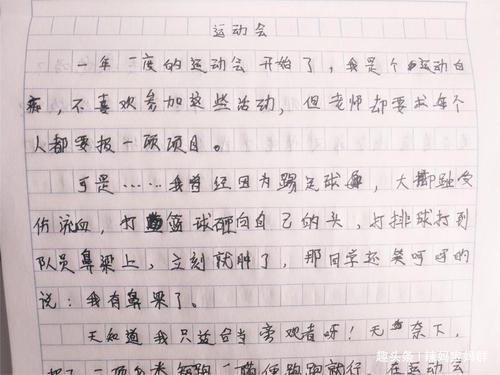 运动会
一年一度的运动会开始了，我是个运动白
痴，不喜欢参加这些活动，但老师却要求每个
人都要报一项项目。
可是……我曾经因为踢足球，大脚趾受
伤流血，打篮球砸向自己的头，打排球打到
队员鼻梁上，立刻就肿了，那同学还笑呵呵的
说：我有鼻梁了。
天知道我只适合当旁观者呀！无奈下，
报了一项
跑跑就行，在运动会
趣头条 / 辣妈宝妈群